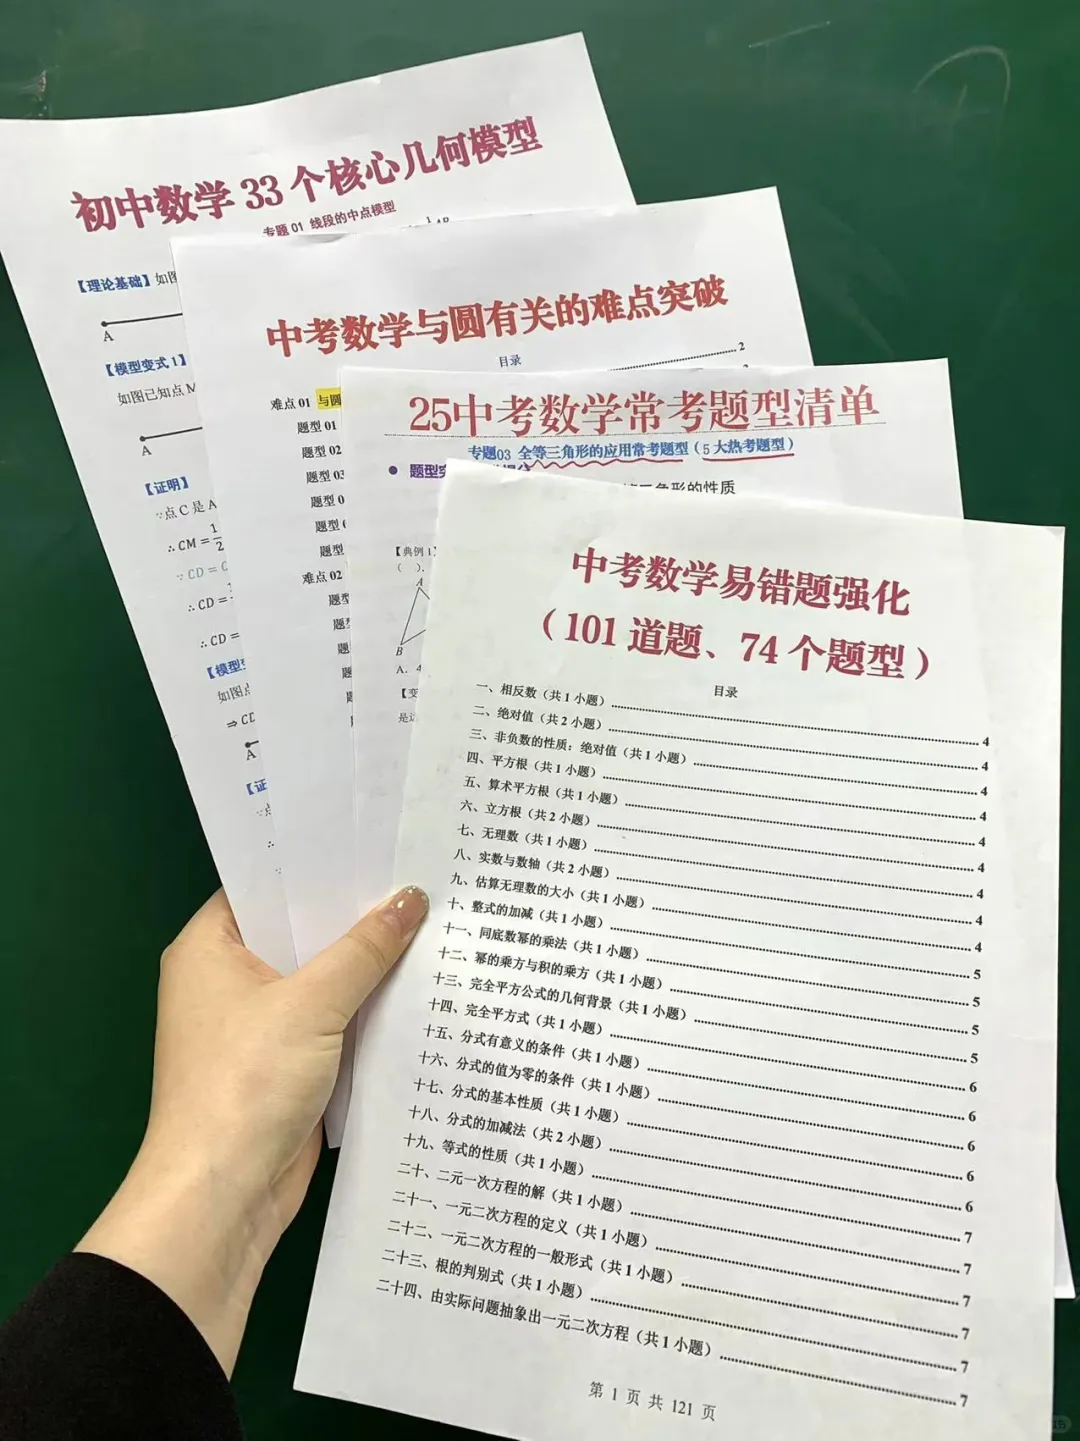 初中数学 33 个核心几何模型
专题 01 线段的中点模型
【理论基础】如图
A
【模型变式 1】
如图已知点 M
A
【证明】
∵点 C 是 A
∴ CM = 1/2
∵ CD =
∴ CD =
∴ CD =
【模型变
如图点
⇒ CD
A
【证
∵点
∴
∵
中考数学与圆有关的难点突破
目录
2
难点 01 与圆
题型 01
题型 02
题型 03
题型 0
题型 0
题型
难点 02
题型
题型
题
题
25中考数学常考题型清单
专题03 全等三角形的应用常考题型（5 大热考题型）
● 题型突
三角形的性质
【典例 1】
（ ）.
A
B
A. 4
【变
是这
中考数学易错题强化
（101 道题、74 个题型）
目录
一、相反数（共 1 小题）4
二、绝对值（共 2 小题）4
三、非负数的性质：绝对值（共 1 小题）4
四、平方根（共 1 小题）4
五、算术平方根（共 1 小题）4
六、立方根（共 2 小题）4
七、无理数（共 1 小题）4
八、实数与数轴（共 2 小题）4
九、估算无理数的大小（共 1 小题）4
十、整式的加减（共 1 小题）5
十一、同底数幂的乘法（共 1 小题）5
十二、幂的乘方与积的乘方（共 1 小题）5
十三、完全平方公式的几何背景（共 1 小题）5
十四、完全平方式（共 1 小题）6
十五、分式有意义的条件（共 1 小题）6
十六、分式的值为零的条件（共 1 小题）6
十七、分式的基本性质（共 1 小题）6
十八、分式的加减法（共 2 小题）6
十九、等式的性质（共 1 小题）7
二十、二元一次方程的解（共 1 小题）7
二十一、一元二次方程的定义（共 1 小题）7
二十二、一元二次方程的一般形式（共 1 小题）7
二十三、根的判别式（共 1 小题）7
二十四、由实际问题抽象出一元二次方程（共 1 小题）7
第 1 页 共 121 页